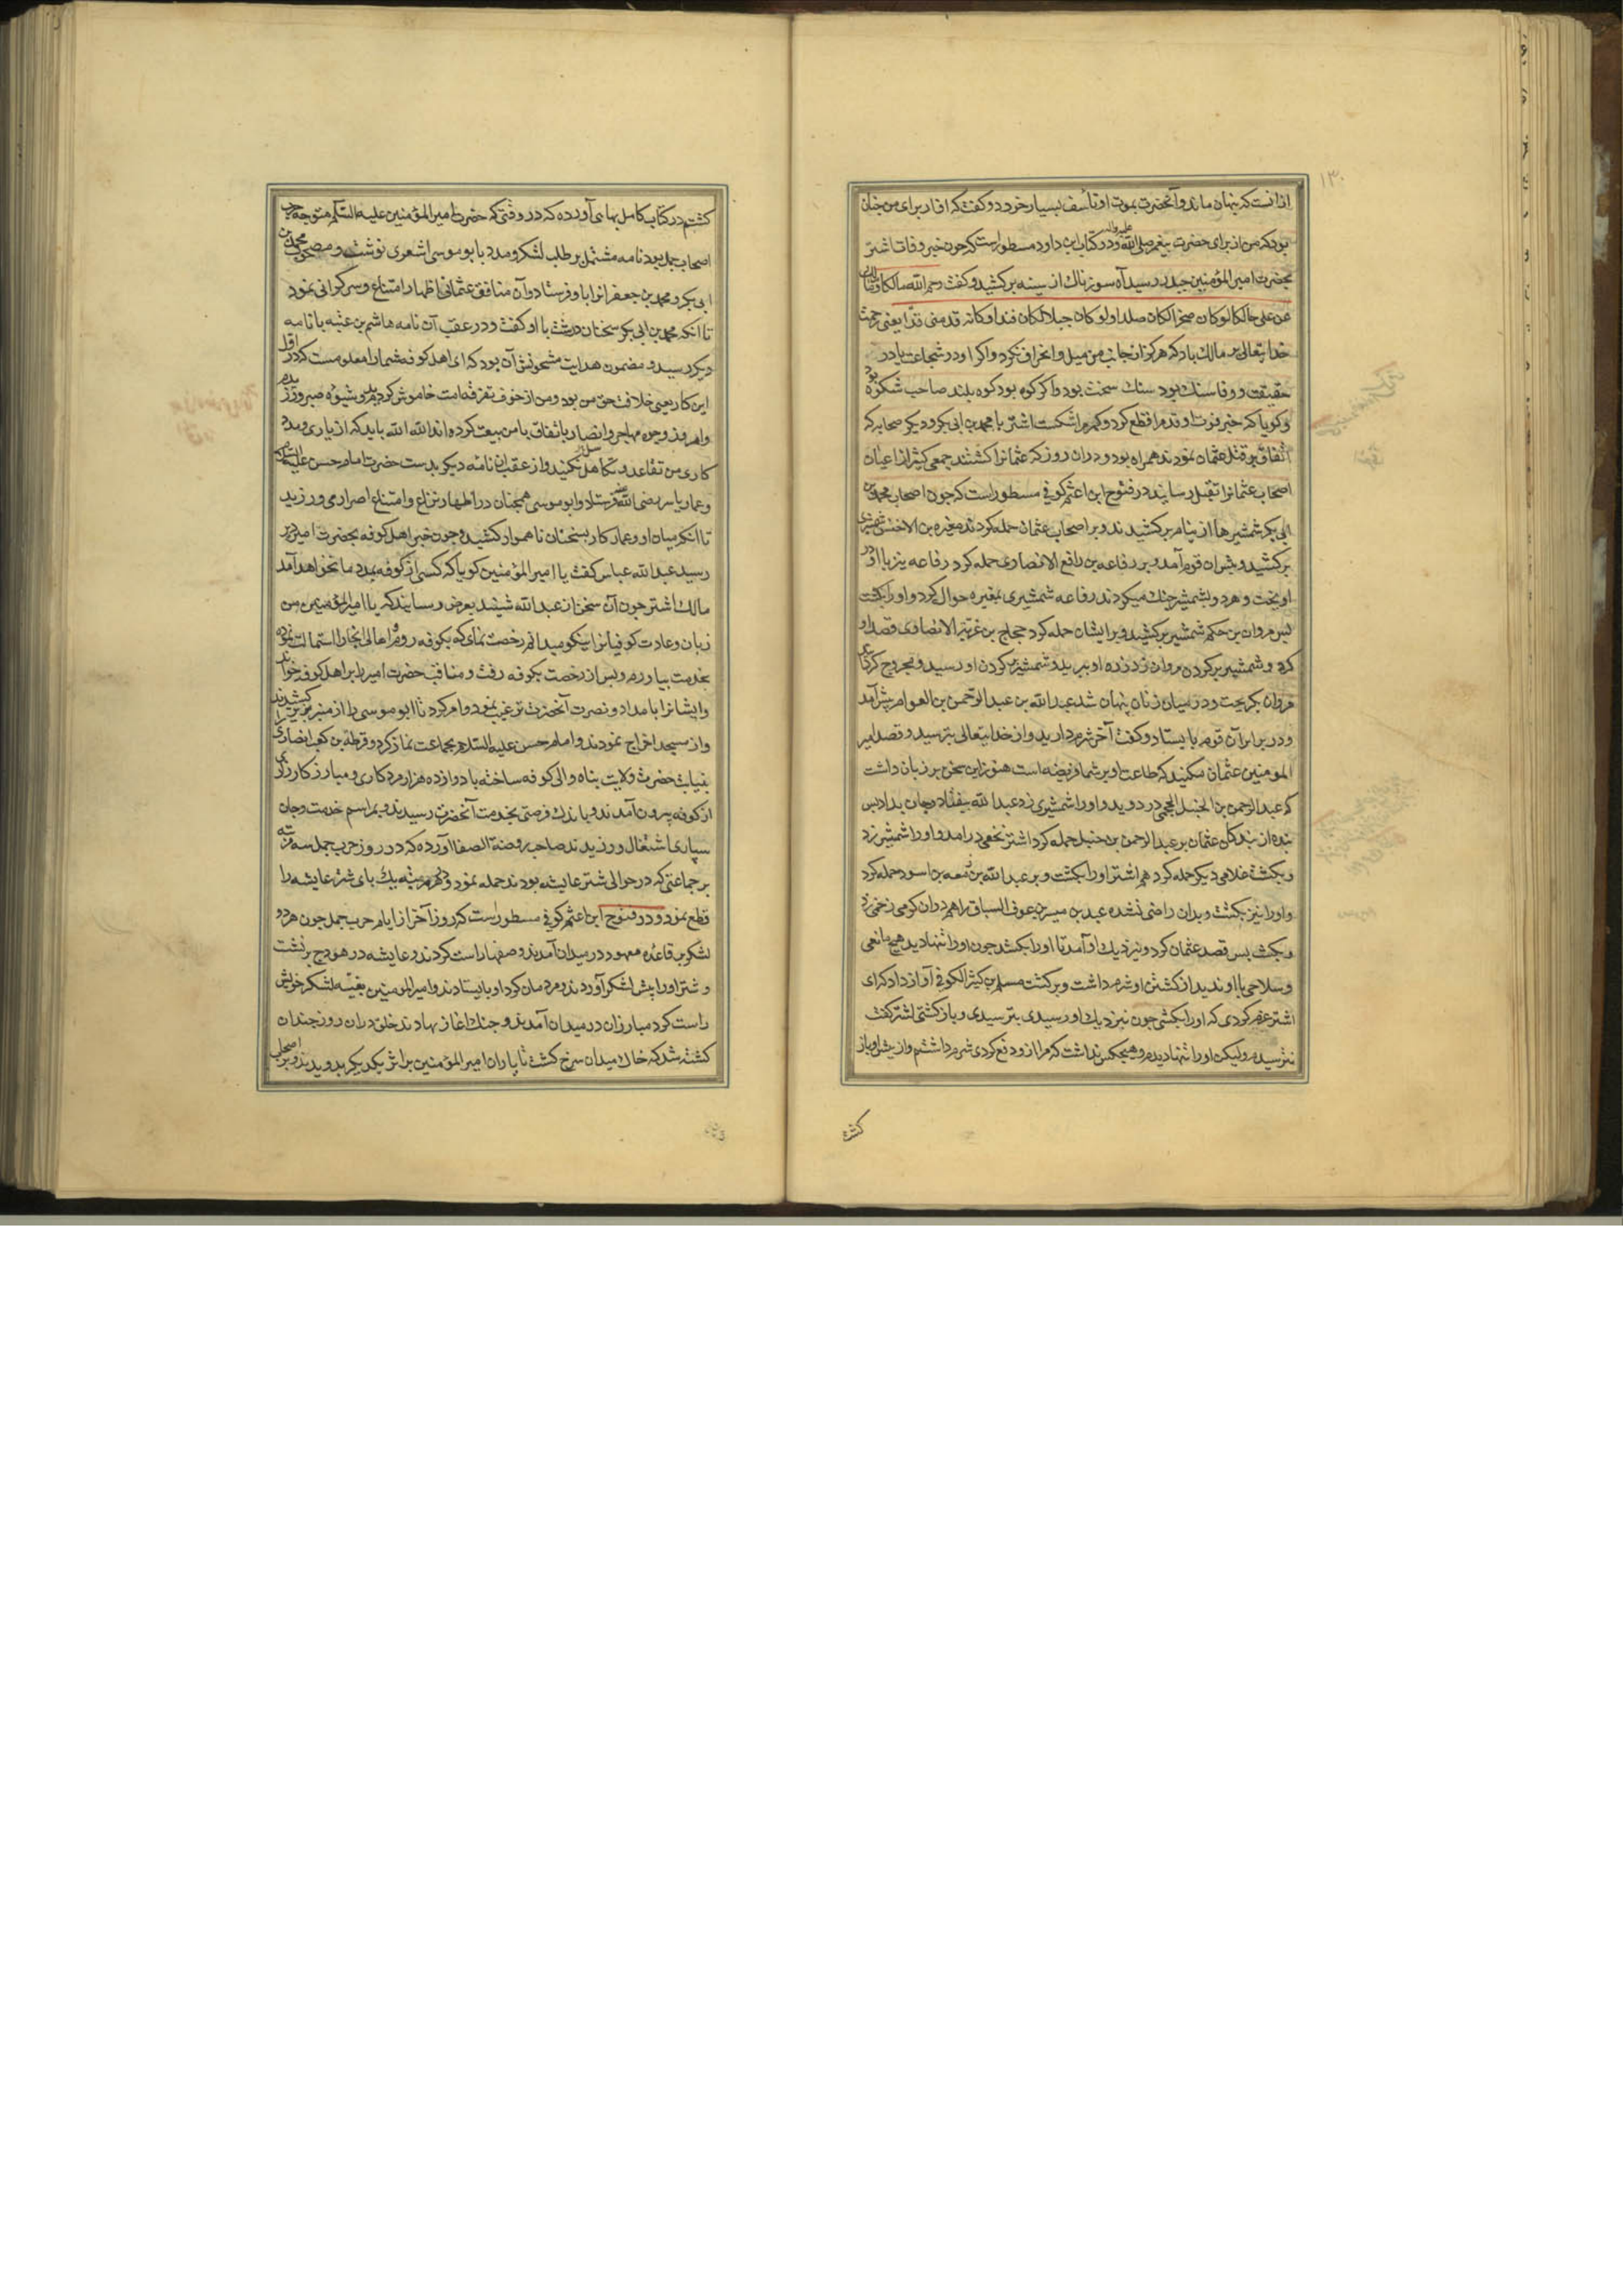 ۱۳۰
از آنست که پنهان ماند و آنحضرت بموت او تأسف بسیار خورد و گفت که او از برای من چنان
بود که من از برای حضرت پیغمبر صلی الله علیه وآله و در کتاب ابن داود مسطور است که چون خبر وفات اشتر
بحضرت امیر المؤمنین حیدر رسید آه سوزناک از سینه برکشید و گفت رحم الله مالکا و
عن علی هالکا لو کان صخرا لکان صلدا و لو کان جبلا لکان فندا و کانه قد منی قدا یعنی رحمت
خدایتعالی بر مالک باد که هرگز از جانب من میل و انحراف نکرد و اگر او در شجاعت یا در
حقیقت و وفا سنک بود سنک سخت بود و اگر کوه بود کوه بلند صاحب شکوه بود
و گویا که خبر فوت او قد مرا قطع کرد و کمرم را شکست اشتر با محمد بن ابی بکر و دیکر صحابه که
اتفاق بر قتل عثمان نمودند همراه بود و دران روز که عثمانرا کشتند جمعی کثیر از اعیان
اصحاب عثمانرا بقتل رسانید در فتوح ابن اعثم کوفی مسطور است که چون اصحاب محمد بن
ابی بکر شمشیرها از نیام برکشیدند و بر اصحاب عثمان حمله کردند مغیره بن الاخنس شمشیری
برکشید و پیش ان قوم آمد و بر رفاعه بن رافع الانصاری حمله کرد رفاعه نیز با او در
اویخت و هر دو بشمشیر جنک میکردند رفاعه شمشیری بمغیره حوال کرد و او را بکشت
پس مروان بن حکم شمشیر برکشید و بر ایشان حمله کرد حجاج بن غزیه الانصاری قصد او
کرد و شمشیر بر کردن مروان زد زره او ببرید و شمشیر بکردن او رسید و مجروح کرد
مروان بکریخت و در میان زنان پنهان شد عبد الله بن عبد الرحمن بن العوام پیش آمد
و در برابر آن قوم بایستاد و گفت آخر شرم دارید و از خدایتعالی بترسید و قصد امیر
المومنین عثمان مکنید که طاعت او بر شما فریضه است هنوز این سخن بر زبان داشت
که عبد الرحمن بن الحنبل الجمحی در دوید و او را شمشیری زد عبد الله بیفتاد و جان بداد پس
بنده از بندکان عثمان بر عبد الرحمن بن حنبل حمله کرد اشتر نخعی درامد و او را شمشیر زد
و بکشت غلامی دیکر حمله کرد هم اشتر او را بکشت و بر عبد الله بن زمعه بن اسود حمله کرد
و او را نیز بکشت و بدان راضی نشده عبد بن میسر بن عوف السباق را هم دران کرمی زخمی زد
و بکشت پس قصد عثمان کرد و نزدیک او آمد تا او را بکشد چون او را تنها دید هیچ مانعی
و سلاحی با او ندید از کشتن او شرم داشت و برکشت مسلم بن کثیر الکوفی آواز داد که ای
اشتر عزم کردی که او را بکشی چون نزدیک او رسیدی بترسیدی و باز کشتی اشتر گفت
نترسیدم ولیکن او را تنها دیدم و هیچکس نداشت که مرا از و دفع کردی شرم داشتم و از پیش او باز
کشتم
کشتم در کتاب کامل بهائی آورده که در وقتی که حضرت امیر المؤمنین علیه السلام متوجه حرب
اصحاب جمل بود نامه مشتمل بر طلب لشکر و مدد بابو موسی اشعری نوشت و مصحوب محمد بن
ابی بکر و محمد بن جعفر انرا باو فرستاد و آن منافق عثمانی اظهار امتناع و سرکرانی نمود
تا انکه محمد بن ابی بکر سخنان درشت با او گفت و در عقب آن نامه هاشم بن عتبه با نامه
دیکر رسید و مضمون هدایت مشحونش آن بود که ای اهل کوفه شما را معلومست که در اول
این کار یعنی خلافت حق من بود و من از خوف تفرقه امت خاموش کردیدم و شیوه صبر ورزیدم
و امروز وجوه مهاجر و انصار باتفاق با من بیعت کرده اند الله الله باید که از یاری و مدد
کاری من تقاعد و تکاهل نکنید و از عقب ان نامه دیکر بدست حضرت امام حسن علیه السلام
و عمار یاسر رضی الله عنه فرستاد و ابو موسی همچنان در اظهار نزاع و امتناع اصرار می ورزید
تا انکه میان او و عمار کار بسخنان ناهموار کشید و چون خبر اهل کوفه بحضرت امیر
رسید عبد الله عباس گفت یا امیر المؤمنین گویا که کسی از کوفه بمدد ما نخواهد آمد
مالک اشتر چون آن سخن از عبد الله شنید بعرض رسانید که یا امیر المؤمنین من
زبان و عادت کوفیانرا نیکو میدانم رخصت نمای که بکوفه روم و اهالی انجا را استمالت نموده
بخدمت بیاورم و پس از رخصت بکوفه رفت و مناقب حضرت امیر را بر اهل کوفه خواند
و ایشانرا بامداد و نصرت آنحضرت ترغیب نمود و امر کرد تا ابو موسی را از منبر بزیر کشیدند
و از مسجد اخراج نمودند و امام حسن علیه السلام بجماعت نماز کرد و قرظه بن کعب انصاری را
بنیابت حضرت ولایت پناه والی کوفه ساخته با دوازده هزار مرد کاری و مبارز کارزاری
از کوفه بیرون آمدند و باندک فرصتی بخدمت آنحضرت رسیدند و بمراسم خدمت و جان
سپاری اشتغال ورزیدند صاحب روضة الصفا آورده که در روز حرب جمل سه مرتبه
بر جماعتی که در حوالی شتر عایشه بودند حمله نمود و در هر مرتبه یک پای شتر عایشه را
قطع نمود و در فتوح ابن اعثم کوفی مسطور است که روز آخر از ایام حرب جمل چون هر دو
لشکر بر قاعده معهود در میدان آمدند و صفها راست کردند و عایشه در هودج برنشست
و شتر او را پیش لشکر آوردند و مردمان کرد او بایستادند و امیر المومنین بقیه لشکر خویش
راست کرد مبارزان در میدان آمدند و جنک اغاز نهادند خلق دران روز چندان
کشته شد که خاک میدان سرخ کشت تا یاران امیر المؤمنین بر اثر یکدیکر بدویدند و بر اصحاب